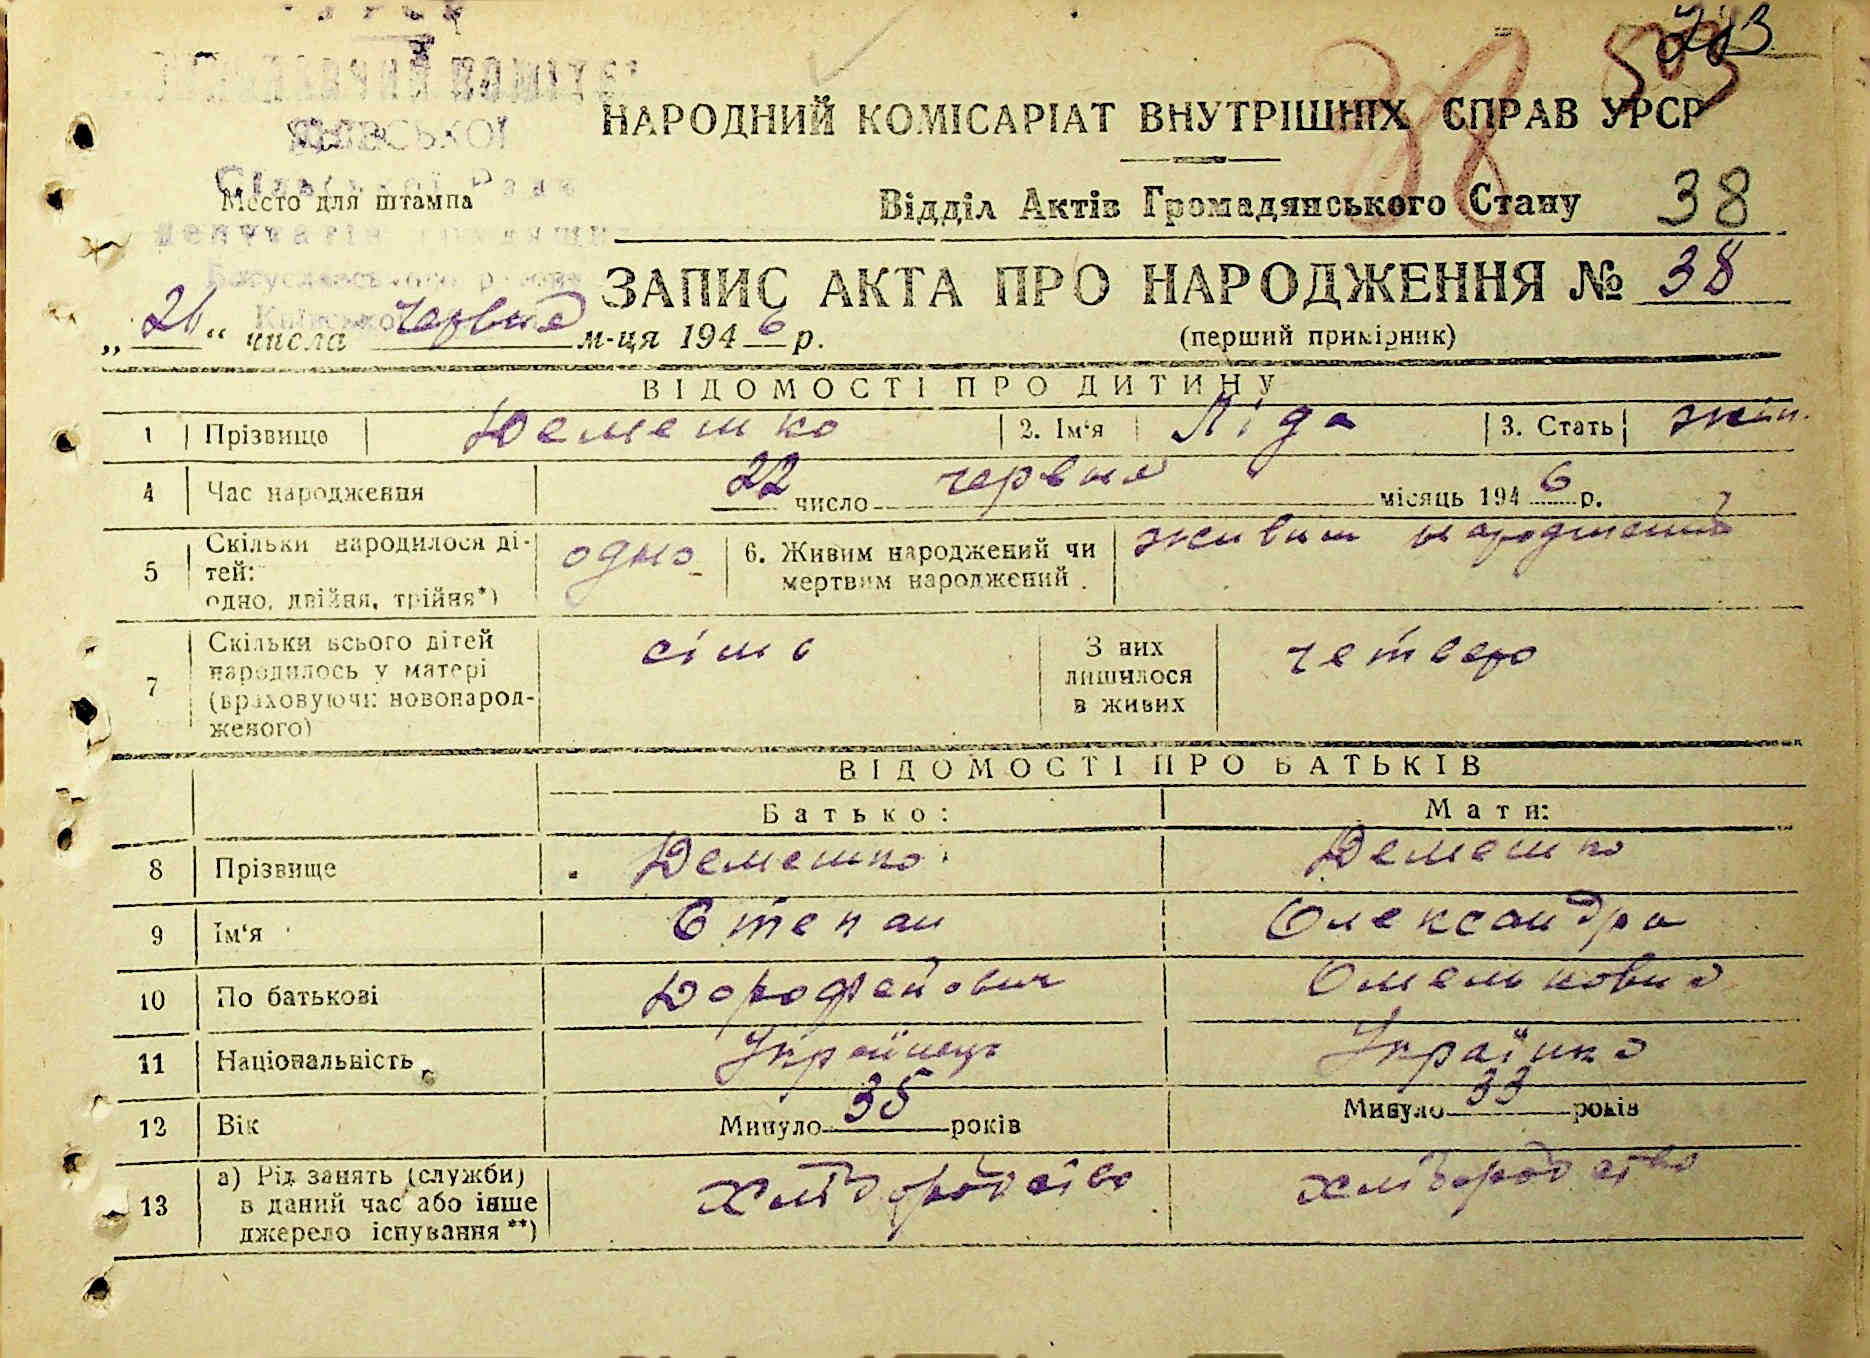 НАРОДНИЙ КОМІСАРІАТ ВНУТРІШНІХ СПРАВ УРСР
38
Место для штампа
Відділ Актів Громадянського Стану 38
ЗАПИС АКТА ПРО НАРОДЖЕННЯ № 38
„26“ числа червня м-ця 1946 р.
(перший примірник)
ВІДОМОСТІ ПРО ДИТИНУ
1 Прізвище Демешко 2. Ім'я Ліда 3. Стать жін.
4 Час народження 22 число червня місяць 1946 р.
5 Скільки народилося ді-
тей:
одно, двійня, трійня*) одно
6. Живим народжений чи
мертвим народжений живим народжений
7 Скільки всього дітей
народилось у матері
(враховуючи новонарод-
женого) сімо
З них
лишилося
в живих четверо
ВІДОМОСТІ ПРО БАТЬКІВ
Батько: Мати:
8 Прізвище Демешко Демешко
9 Ім'я Степан Олександра
10 По батькові Дорофейович Омельковна
11 Національність Українець Українка
12 Вік Минуло 35 років Минуло 33 років
13 а) Рід занять (служби)
в даний час або інше
джерело існування**) хліборобство хліборобство